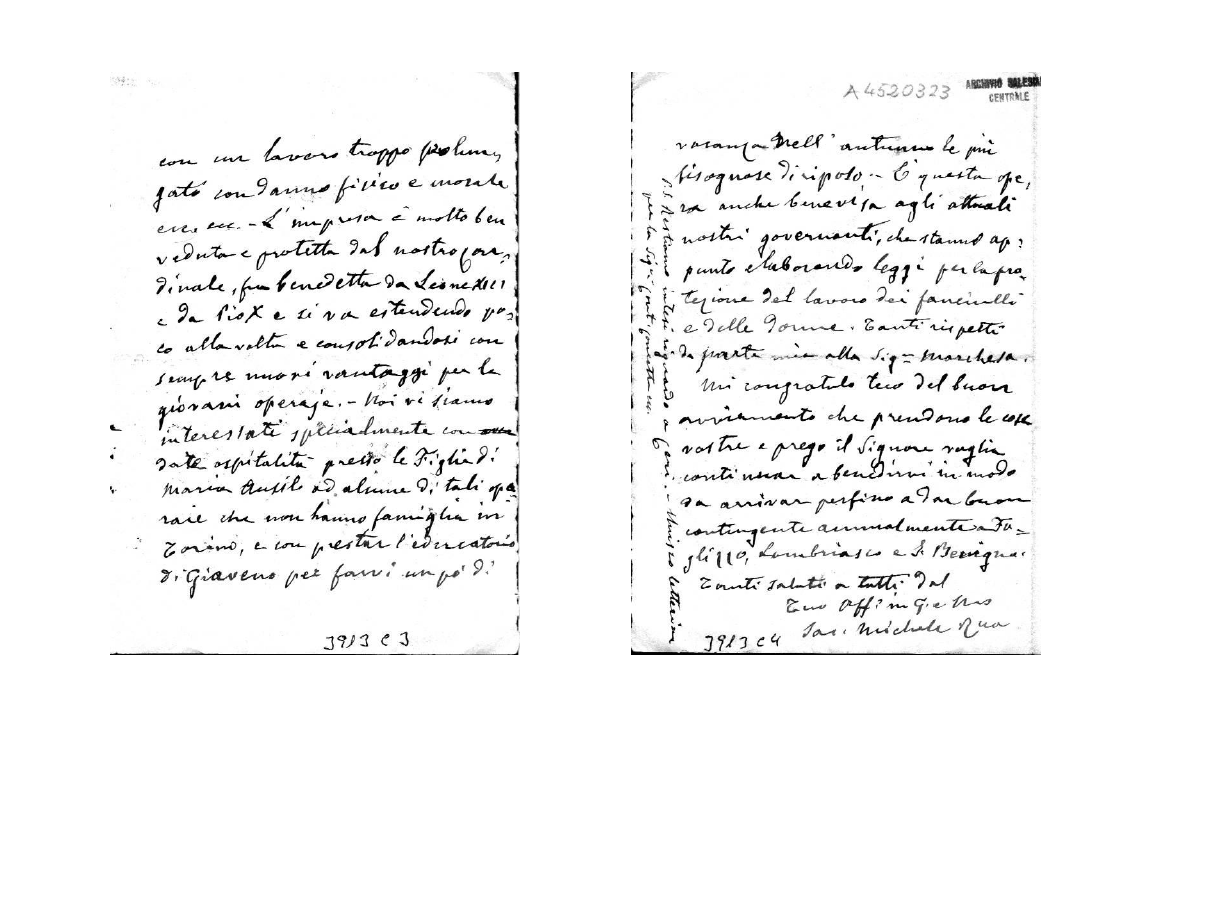 con un lavoro troppo prolun,
gato con danno fisico e morale
ecc. ecc. - L'impresa è molto ben
veduta e protetta dal nostro Car,
dinale, fu benedetta da Leone XIII
e da Pio X e si va estendendo po,
co alla volta e consolidandosi con
sempre nuovi vantaggi per le
giovani operaje. - Noi vi siamo
interessati specialmente con
dare ospitalità presso le Figlie di
Maria Ausil. ad alcune di tali ope,
raie che non hanno famiglia in
Torino, e con prestar l'educatorio
di Giaveno per farvi un pò di
3913 C 3
A 4520323
ARCHIVIO SALESIA
CENTRALE
vacanza nell'autunno le più
bisognose di riposo. - È questa ope,
ra anche benevisa agli attuali
nostri governanti, che stanno ap,
punto elaborando leggi per la pro,
tezione del lavoro dei fanciulli
e delle donne. Tanti rispetti
da parte mia alla Sig.a Marchesa.
Mi congratulo teco del buon
avviamento che prendono le cose
vostre e prego il Signore voglia
continuar a benedirvi in modo
da arrivar perfino a dar buon
contingente annualmente a Fo=
glizzo, Lombriasco e S. Benigno.
Tanti saluti a tutti dal
Tuo Aff. in G. e M.
Sac. Michele Rua
3913 C 4
P.S. Restiamo intesi riguardo a - Unisco letterina
per la Sig.a Cont.